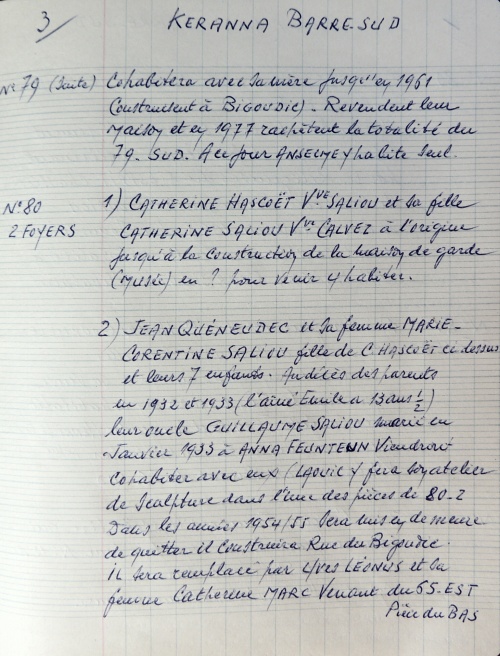 3/ KERANNA BARRE SUD
N° 79 (Suite) Cohabitera avec sa mère jusqu'en 1961
Construisent à BIGOUDIC. Revendent leur
Maison et en 1977 rachètent la totalité du
79. SUD. A ce jour ANSELME y habite seul.
N° 80 1) CATHERINE HASCOËT Vve SALIOU et sa fille
2 FOYERS CATHERINE SALIOU Vve CALVEZ à l'origine
jusqu'à la construction de la maison de garde
(Musée) en ? pour venir y habiter.
2) JEAN QUÉNEUDEC et sa femme MARIE-
CORENTINE SALIOU fille de C. HASCOËT ci dessus
et leurs 7 enfants. Au décès des parents
en 1932 et 1933 (l'aîné Emile a 13 ans 1/2)
leur oncle GUILLAUME SALIOU marié en
Janvier 1933 à ANNA FEUNTEUN Viendront
Cohabiter avec eux (LAOUIC y fera son atelier
de Sculpture dans l'une des pièces de 80-2
Dans les années 1954/55 Sera mis en demeure
de quitter il construira Rue du Bigoudic.
IL sera remplacé par YVES LÉONUS et sa
femme Catherine MARC Venant du 65-EST
Pièce du BAS